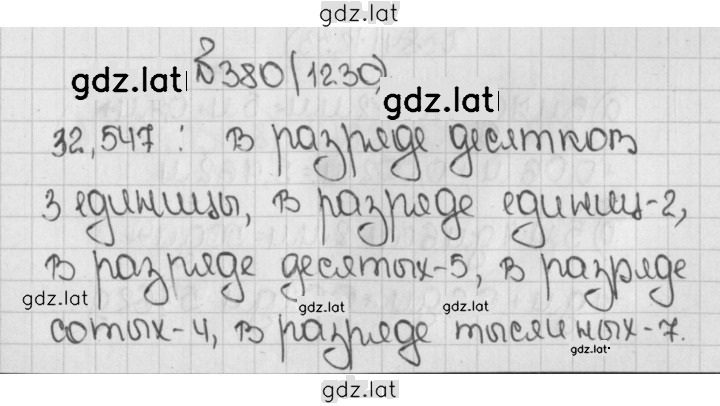 gdz.lat
№380(1230)
gdz.lat
gdz.lat
32,547: в разряде десятков
3 единицы, в разряде единиц-2,
в разряде десятых-5, в разряде
gdz.lat
gdz.lat
gdz.lat
сотых-4, в разряде тысячных-7.
gdz.lat
gdz.lat